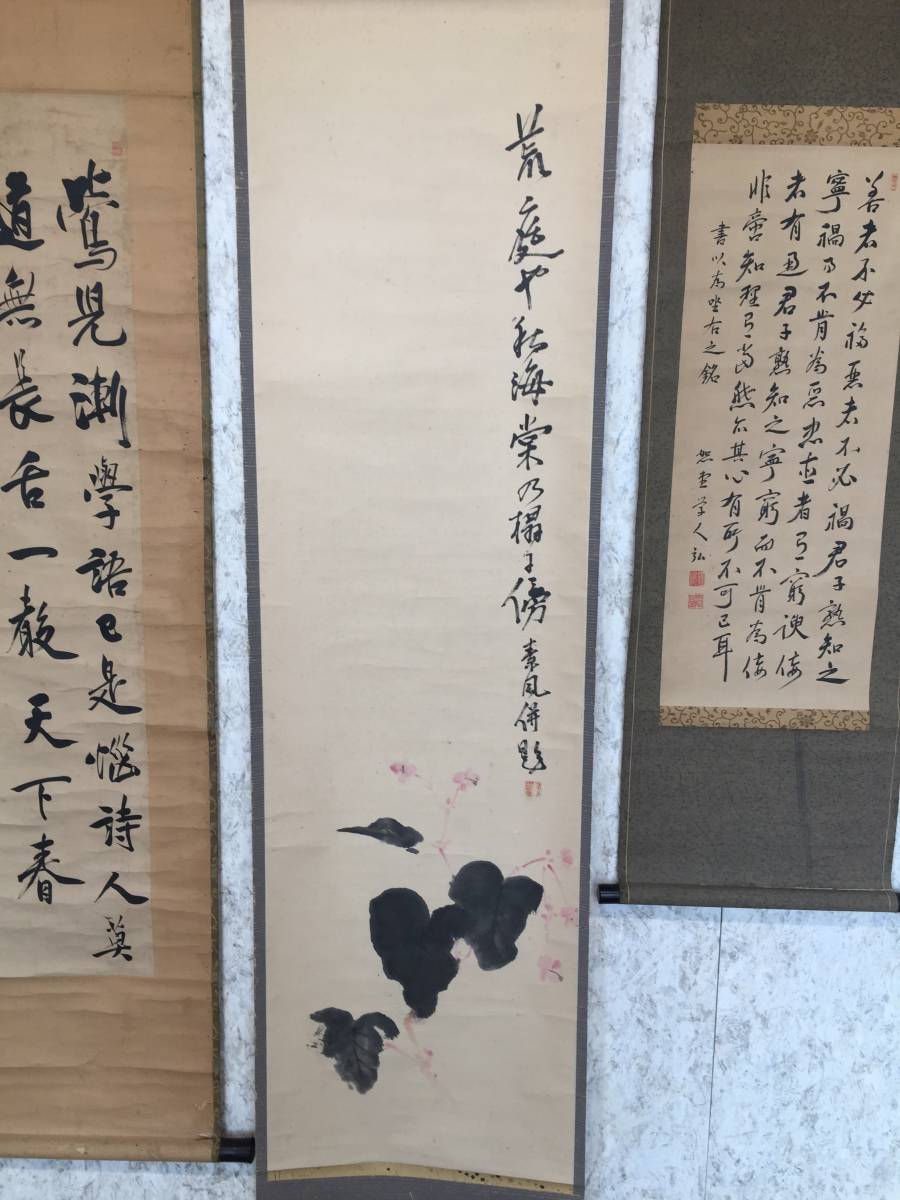 善者不必福悪者不必禍君子熟知之
寧禍而不肯為惡忠直者有窮諛佞
者有通君子熟知之寧窮而不肯為佞
非啻知理有當然亦其心有所不可已耳
書以為坐右之銘
学人弘
荒庭や秋海棠乃榻に傍 素風併題
鶯児漸學語已是惱詩人莫
道無長舌一聲天下春